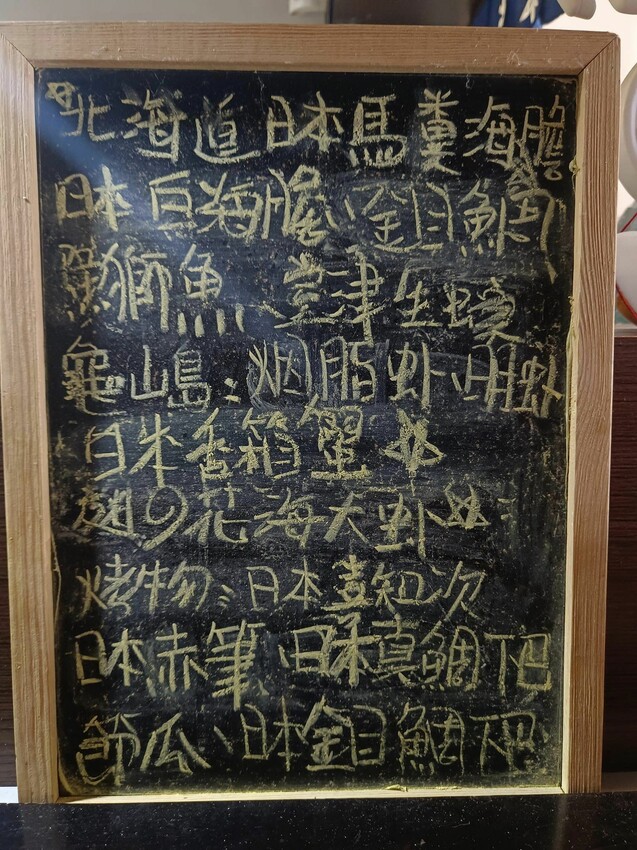 北海道日本馬糞海膽
日本白海膽、金目鯛
鰤魚、草津生蠔
龜山島:烟脂虾、明虾
日本香箱蟹
の花海大虾
烤物:日本喜知次
日本赤筆、日本真鯛下巴
節瓜、日本金目鯛下巴